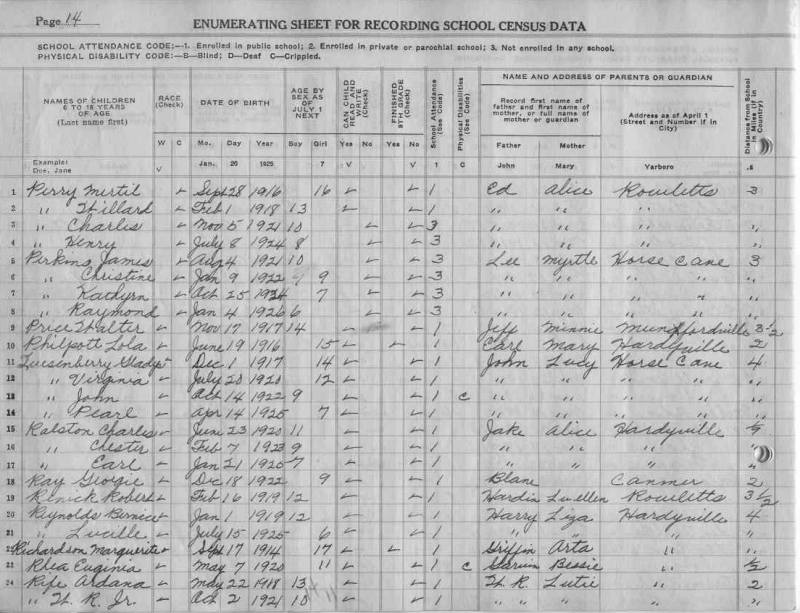 Page 14
ENUMERATING SHEET FOR RECORDING SCHOOL CENSUS DATA
SCHOOL ATTENDANCE CODE:—1. Enrolled in public school; 2. Enrolled in private or parochial school; 3. Not enrolled in any school.
PHYSICAL DISABILITY CODE:—B—Blind; D—Deaf C—Crippled.
NAMES OF CHILDREN 6 TO 18 YEARS OF AGE (Last name first) RACE (Check) DATE OF BIRTH AGE BY SEX AS OF JULY 1 NEXT CAN CHILD READ AND WRITE (Check) FINISHED 8TH GRADE (Check) School Attendance (See Code) Physical Disabilities (See Code) NAME AND ADDRESS OF PARENTS OR GUARDIAN Distance from School in Miles (if in Country)
Record first name of father and first name of mother, or full name of mother or guardian Address as of April 1 (Street and Number if in City)
W C Mo. Day Year Boy Girl Yes No Yes No Father Mother
Example: Doe, Jane V Jan. 26 1925 7 V V 1 C John Mary Yarboro .5
1 Perry Mertil ✓ Sept 28 1916 16 ✓ ✓ 1 Ed Alice Rowletts 3
2 " Willard ✓ Feb 1 1918 13 ✓ ✓ 1 " " "
3 " Charles ✓ Nov 5 1921 10 ✓ ✓ 3 " " " "
4 " Henry ✓ July 8 1924 8 ✓ ✓ 3 " " " "
5 Perkins James ✓ Aug 4 1921 10 ✓ ✓ 3 Lee Myrtle Horse Cave 3
6 " Christine ✓ Jan 9 1922 9 ✓ ✓ 3 " " " "
7 " Kathyrn ✓ Oct 25 1924 7 ✓ ✓ 3 " " " "
8 " Raymond ✓ Jan 4 1926 6 ✓ ✓ 3 " " " "
9 Price Walter ✓ Nov 17 1917 14 ✓ ✓ 1 Jeff Minnie Munfordville 3 1/2
10 Philpott Lola ✓ June 19 1916 15 ✓ ✓ 1 Carl Mary Hardyville 2
11 Quesenberry Gladys ✓ Dec 1 1917 14 ✓ ✓ 1 John Lucy Horse Cave 4
12 " Virginia ✓ July 20 1920 12 ✓ ✓ 1 " " " "
13 " John ✓ Oct 14 1922 9 ✓ ✓ 1 C " " " "
14 " Pearl ✓ Apr 14 1925 7 ✓ ✓ 1 " " " "
15 Ralston Charles ✓ Jun 23 1920 11 ✓ ✓ 1 Jake Alice Hardyville 1/2
16 " Chester ✓ Feb 7 1923 9 ✓ ✓ 1 " " "
17 " Earl ✓ Jan 21 1925 7 ✓ ✓ 1 " " " "
18 Ray Georgie ✓ Dec 18 1922 9 ✓ ✓ 1 Blane Canmer 2
19 Renick Robert ✓ Feb 16 1919 12 ✓ ✓ 1 Hardin Luellen Rowletts 3 1/2
20 Reynolds Bernice ✓ Jan 1 1919 12 ✓ ✓ 1 Harry Liza Hardyville 4
21 " Lucille ✓ July 15 1925 6 ✓ ✓ 1 " " " "
22 Richardson Marguerite ✓ Sept 17 1914 17 ✓ ✓ 1 Griffin Arta " "
23 Rhea Euginia ✓ May 7 1920 11 ✓ ✓ 1 C Bessie " 1/2
24 Ardana ✓ May 22 1918 13 ✓ ✓ 1 W. R. Lutie " 2
" W. R. Jr. ✓ Oct 2 1921 10 ✓ ✓ 1 " " " "